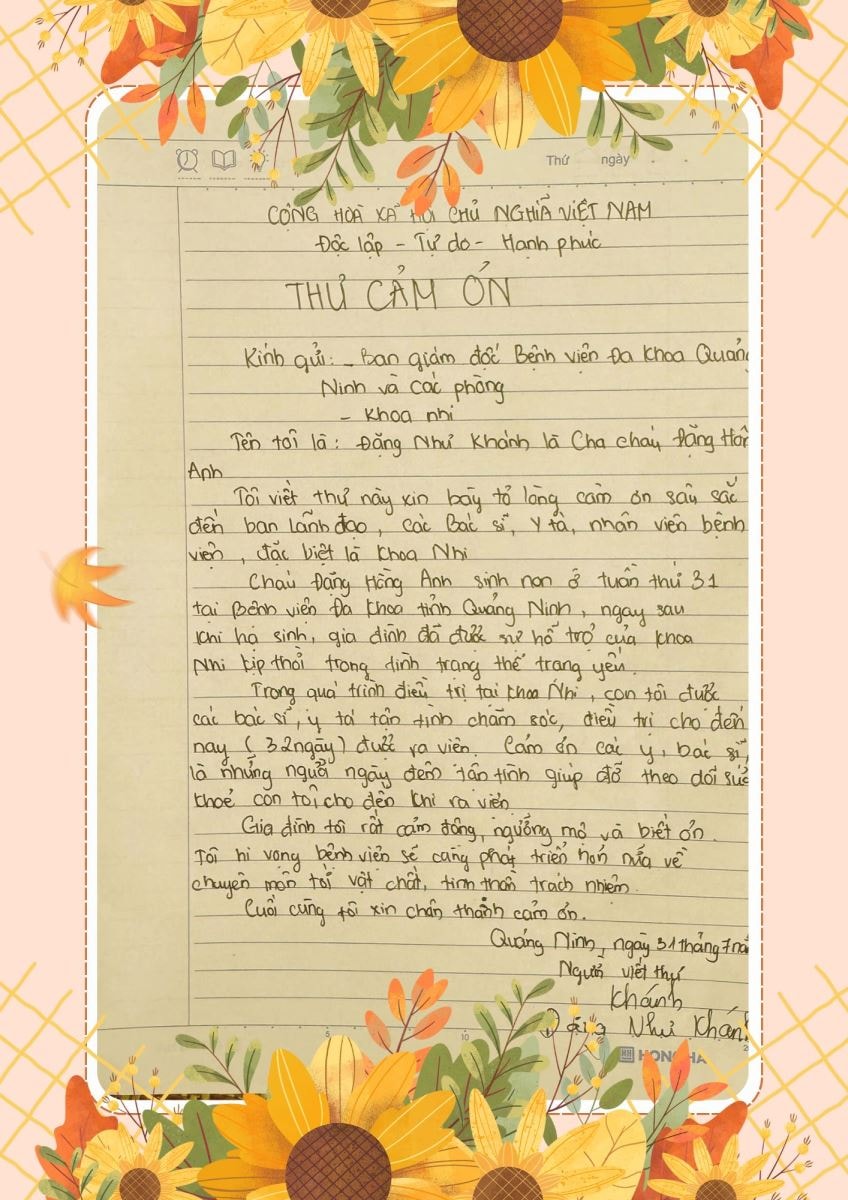 Thứ ngày
CỘNG HOÀ XÃ HỘI CHỦ NGHĨA VIỆT NAM
Độc lập - Tự do - Hạnh phúc
THƯ CẢM ƠN
Kính gửi: - Ban giám đốc Bệnh viện Đa khoa Quảng
Ninh và các phòng
- Khoa nhi
Tên tôi là: Đặng Như Khánh là Cha cháu Đặng Hồng
Anh
Tôi viết thư này xin bày tỏ lòng cảm ơn sâu sắc
đến ban lãnh đạo, các Bác sĩ, Y tá, nhân viên bệnh
viện, đặc biệt là Khoa Nhi
Cháu Đặng Hồng Anh sinh non ở tuần thứ 31
tại Bệnh viện Đa khoa tỉnh Quảng Ninh, ngay sau
khi hạ sinh, gia đình đã được sự hỗ trợ của khoa
Nhi kịp thời trong tình trạng thể trạng yếu.
Trong quá trình điều trị tại khoa Nhi, con tôi được
các bác sĩ, y tá tận tình chăm sóc, điều trị cho đến
nay (32 ngày) được ra viện. Cảm ơn các y, bác sĩ,
là những người ngày đêm tận tình giúp đỡ theo dõi sức
khoẻ con tôi cho đến khi ra viện
Gia đình tôi rất cảm động, ngưỡng mộ và biết ơn.
Tôi hi vọng bệnh viện sẽ càng phát triển hơn nữa về
chuyên môn tới vật chất, tinh thần trách nhiệm.
Cuối cùng tôi xin chân thành cảm ơn.
Quảng Ninh, ngày 31 tháng 7
Người viết thư
Khánh
Đặng Như Khánh
5 10
HONG HA